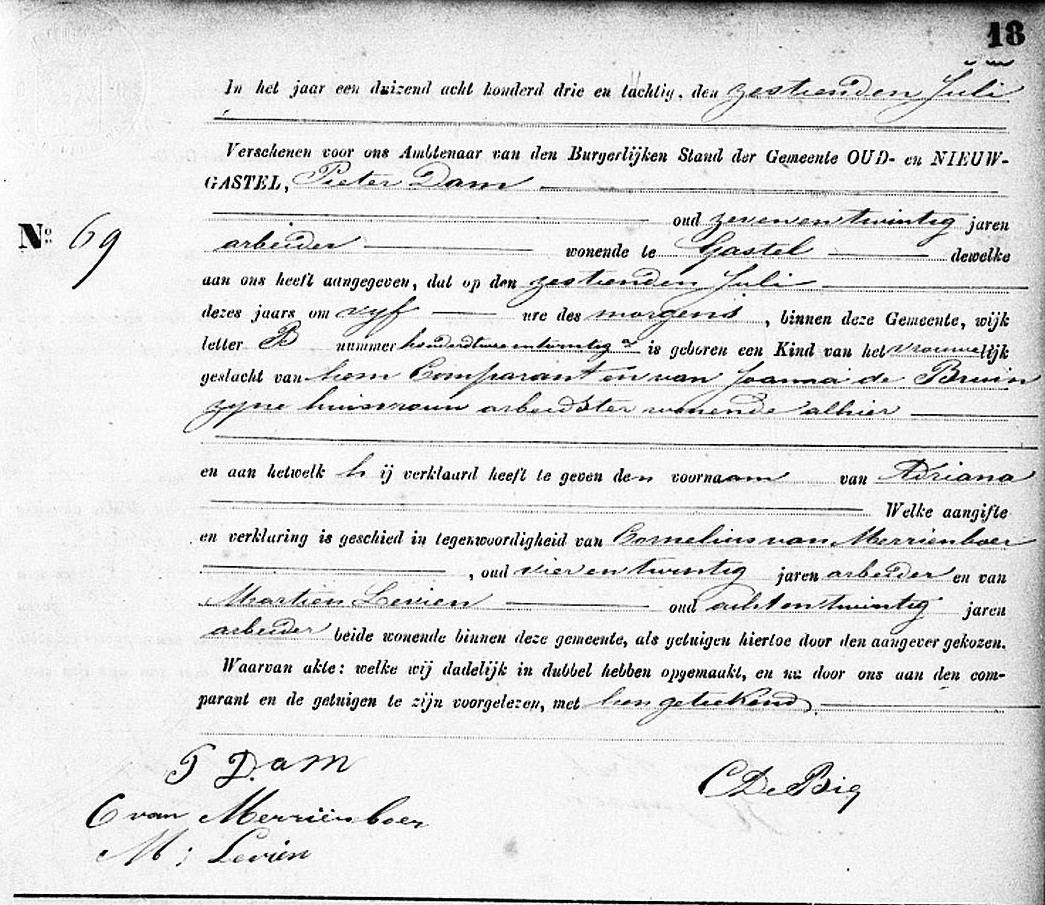 18
In het jaar een duizend acht honderd drie en tachtig, den zestienden Juli
Verschenen voor ons Ambtenaar van den Burgerlijken Stand der Gemeente OUD- en NIEUW-
GASTEL, Pieter Dam
oud zeven en twintig jaren
No. 69
arbeider wonende te Gastel dewelke
aan ons heeft aangegeven, dat op den zestienden Juli
dezes jaars om vyf ure des morgens, binnen deze Gemeente, wijk
letter B nummer honderd twee en twintig a is geboren een Kind van het vrouwelijk
geslacht van hem Comparant en van Joanna de Bruin
zyne huisvrouw arbeidster wonende alhier
en aan hetwelk hij verklaard heeft te geven den voornaam van Adriana
Welke aangifte
en verklaring is geschied in tegenwoordigheid van Cornelius van Merriënboer
, oud vier en twintig jaren arbeider en van
Martien Levien oud acht en twintig jaren
arbeider beide wonende binnen deze gemeente, als getuigen hiertoe door den aangever gekozen.
Waarvan akte: welke wij dadelijk in dubbel hebben opgemaakt, en na door ons aan den com-
parant en de getuigen te zijn voorgelezen, met hen geteekend.
P Dam
C De Big
C van Merriënboer
M: Levien